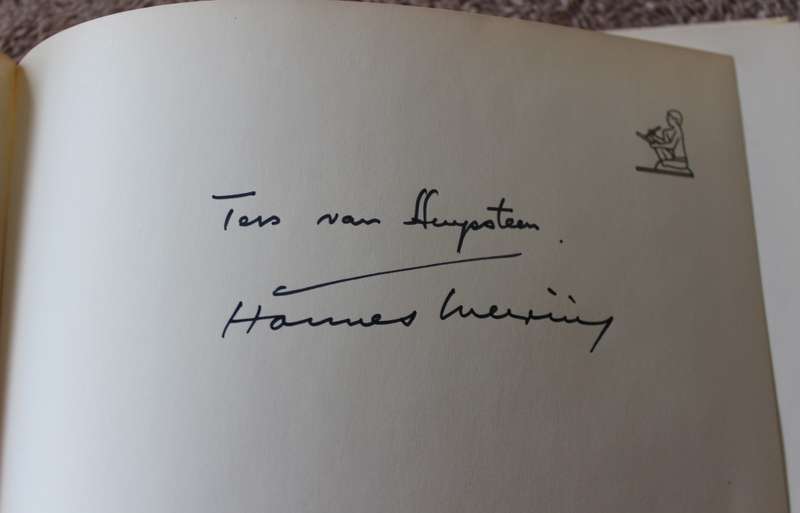 Ters van Huyssteen.
Hannes Meiring